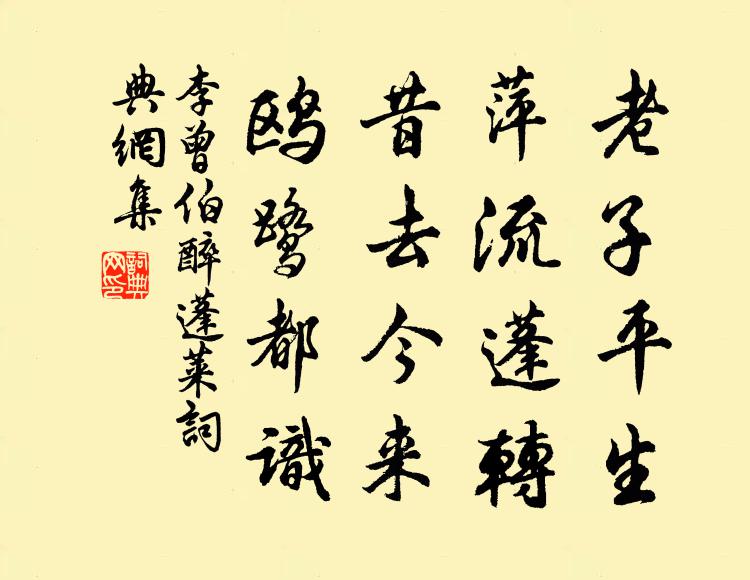 老子平生
萍流蓬轉
昔去今来
鸥鹭都識
李曾伯醉蓬莱詞
典網集
詞典網印